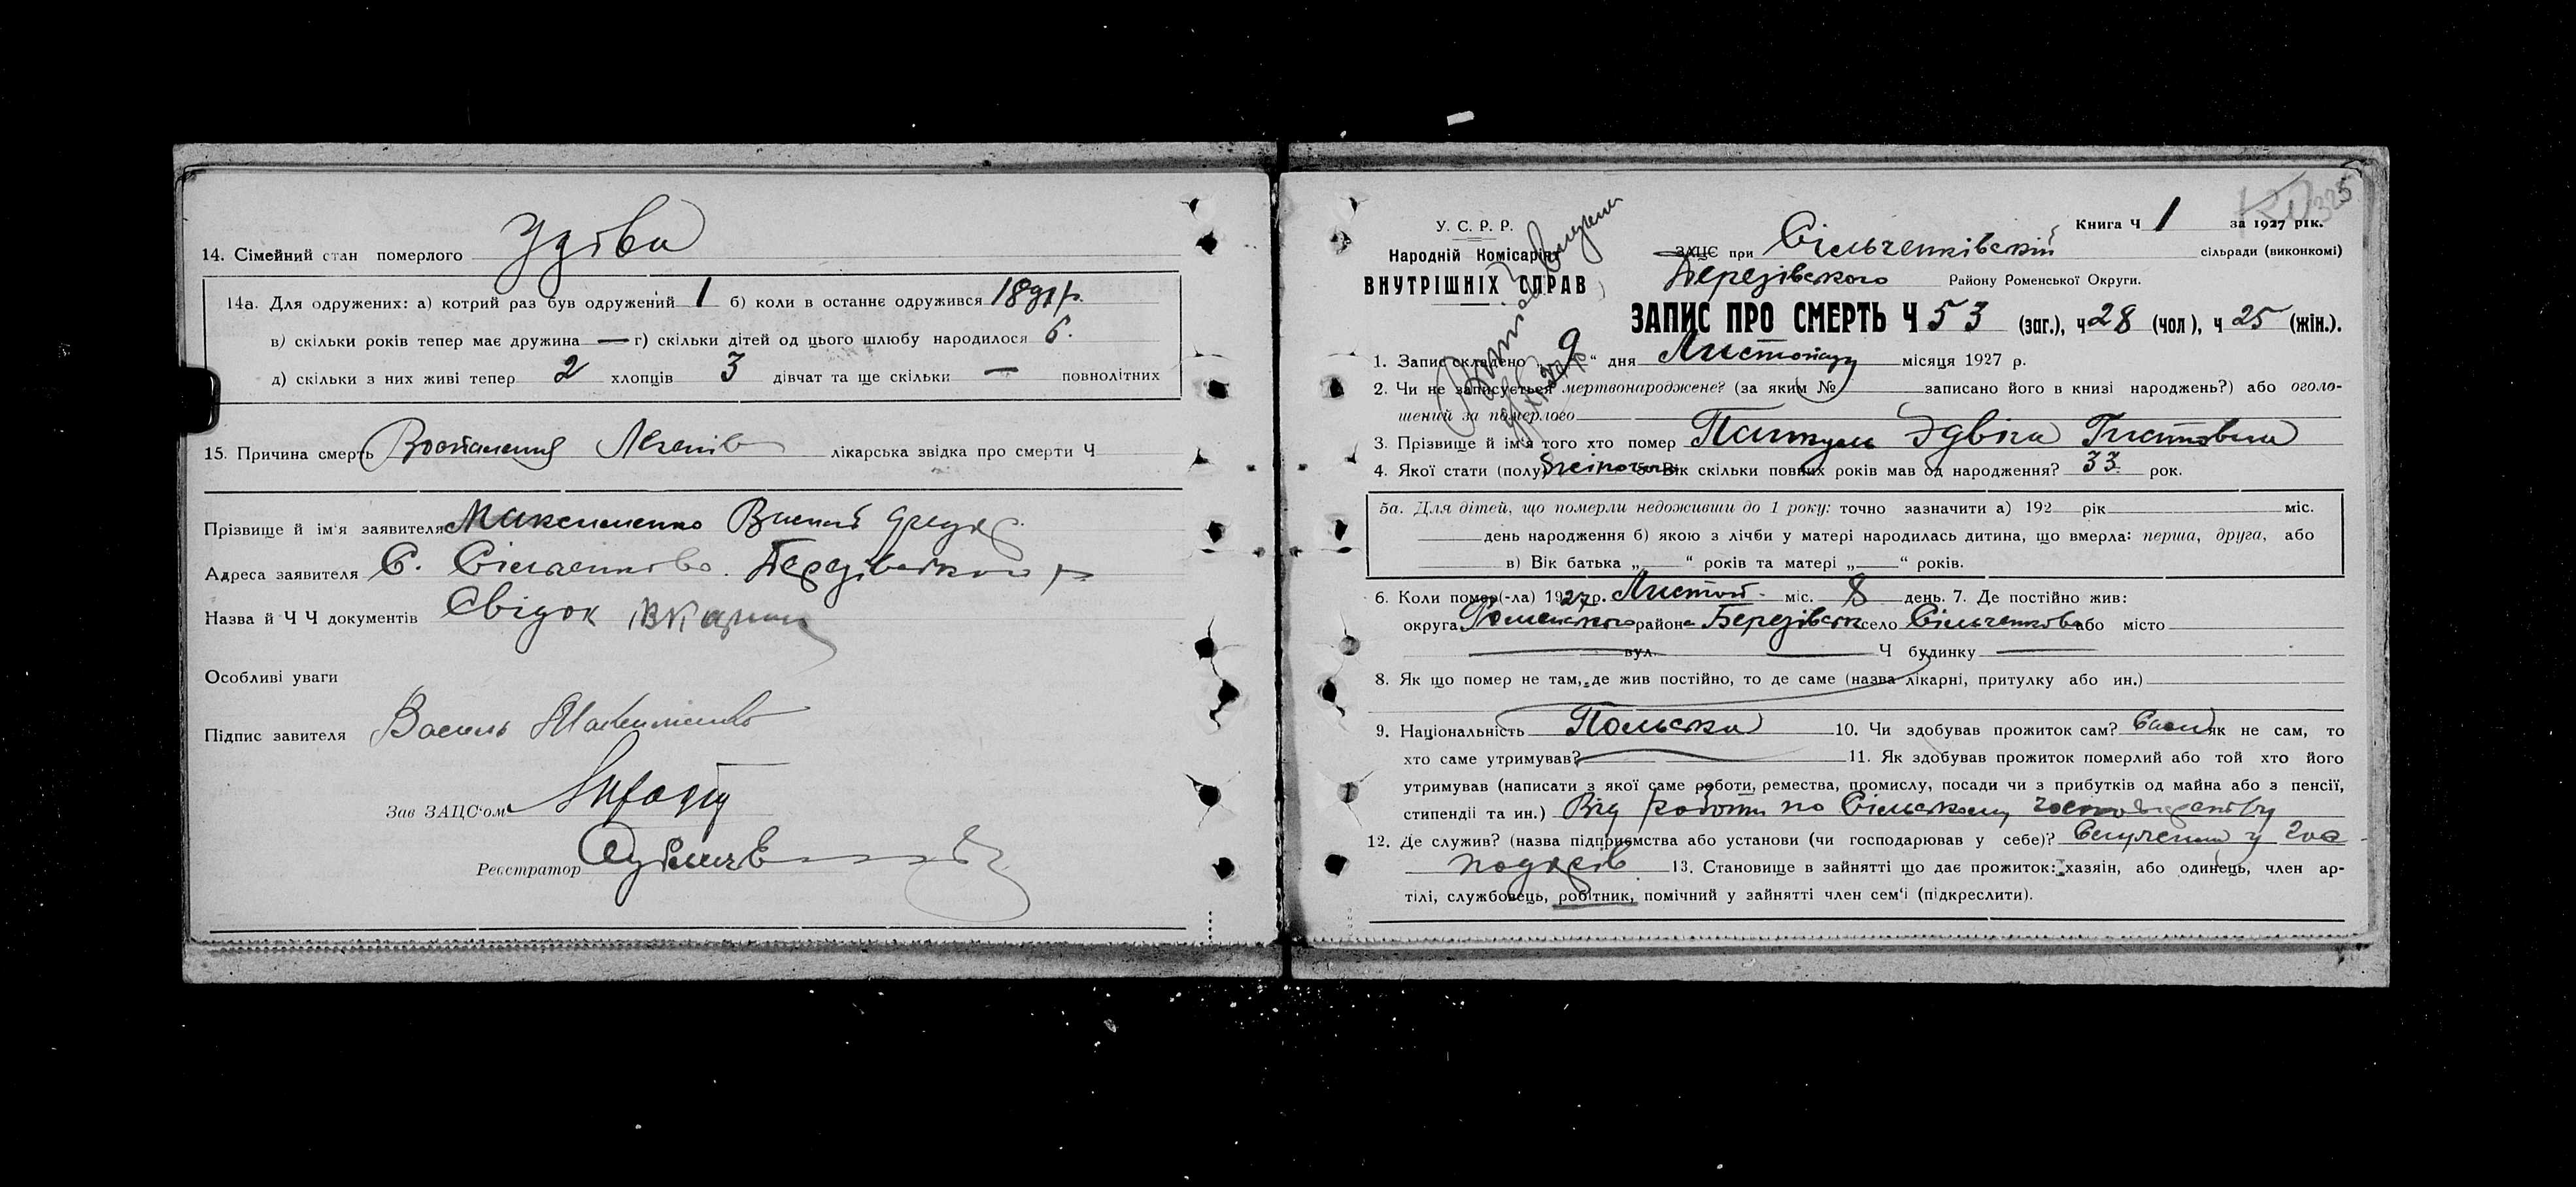 14. Сімейний стан померлого Удіва
14а. Для одружених: а) котрий раз був одружений 1 б) коли в останнє одружився р.
в) скільки років тепер має дружина — г) скільки дітей од цього шлюбу народилося 6.
д) скільки з них живі тепер 2 хлопців 3 дівчат та ще скільки — повнолітних
15. Причина смерть лікарська звідка про смерти Ч
Прізвище й ім'я заявителя Максименко
Адреса заявителя С. Сільченково Березівського р
Назва й Ч Ч документів Свідок
Особливі уваги
Підпис завителя Василь Максименко
Зав ЗАЦС'ом
Реєстратор
325
У. С. Р. Р.
Народній Комісаріят
ВНУТРІШНІХ СПРАВ
Книга Ч 1 за 1927 рік.
ЗАЦС при Сільченківській сільради (виконкомі)
Березівського Району Роменської Округи.
ЗАПИС ПРО СМЕРТЬ Ч 53 (заг.), ч 28 (чол), ч 25 (жін.).
1. Запис складено „ 9 “ дня Листопаду місяця 1927 р.
2. Чи не записується мертвонароджене? (за яким № записано його в книзі народжень?) або оголо-
шений за померлого
3. Прізвище й ім'я того хто помер Эдвіга
4. Якої стати (полу) 5. Вік скільки повних років мав од народження? 33 рок.
5а. Для дітей, що померли недоживши до 1 року: точно зазначити а) 192 рік міс.
день народження б) якою з лічби у матері народилась дитина, що вмерла: перша, друга, або
в) Вік батька „ “ років та матері „ “ років.
6. Коли помер(-ла) 1927 р. Листоп. міс. 8 день. 7. Де постійно жив:
округа Роменського района Березівськ село Сільченково або місто
вул. Ч будинку
8. Як що помер не там, де жив постійно, то де саме (назва лікарні, притулку або ин.)
9. Національність Полька 10. Чи здобував прожиток сам? Сама як не сам, то
хто саме утримував? 11. Як здобував прожиток померлий або той хто його
утримував (написати з якої саме роботи, ремества, промислу, посади чи з прибутків од майна або з пенсії,
стипендії та ин.) Від роботи по Сільському господарству
12. Де служив? (назва підприємства або установи (чи господарював у себе)? у гос-
подарів 13. Становище в зайнятті що дає прожиток: хазяін, або одинець, член ар-
тілі, службовець, робітник, помічний у зайнятті член сем'і (підкреслити).